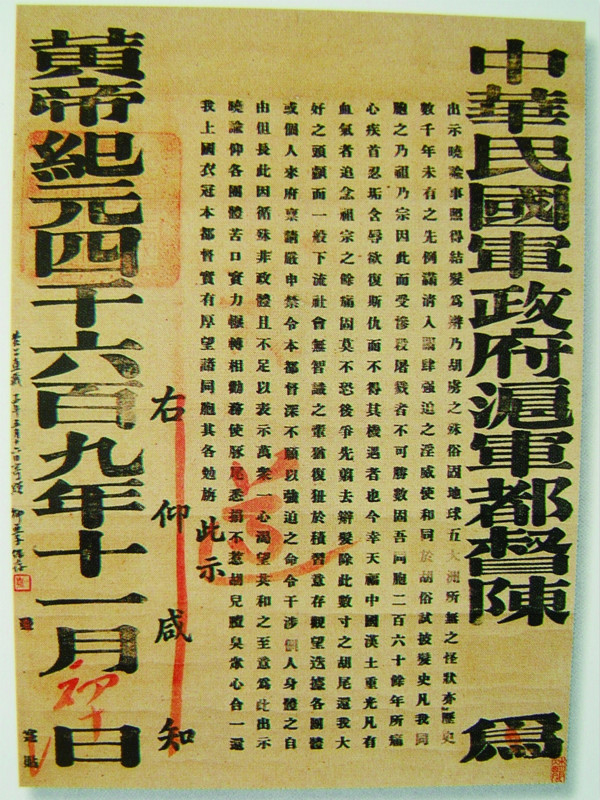 中華民國軍政府滬軍都督陳 爲
出示曉諭事照得結髮爲辮乃胡虜之殊俗固地球五大洲所無之怪狀亦歷史
數千年未有之先例滿清入關肆強迫之淫威使和同於胡俗試披髮史凡我同
胞之乃祖乃宗因此而受慘殺屠戮者不可勝數固吾同胞二百六十餘年所痛
心疾首忍垢含辱欲復斯仇而不得其機遇者也今幸天福中國漢土重光凡有
血氣者追念祖宗之餘痛固莫不恐後爭先翦去辮髮除此數寸之胡尾還我大
好之頭顱而一般下流社會無智識之輩猶復狃於積習意存觀望迭據各團體
或個人來府稟請嚴申禁令本都督深不願以強迫之命令干涉個人身體之自
由但長此因循殊非政體且不足以表示萬衆一心渴望共和之至意爲此出示
曉諭仰各團體苦口實力輾轉相勸務使豚尾悉捐不惹胡兒膻臭衆心合一還
我上國衣冠本都督實有厚望諸同胞其各勉旃
此示
右仰咸知
黃帝紀元四千六百九年十一月初十日
實貼